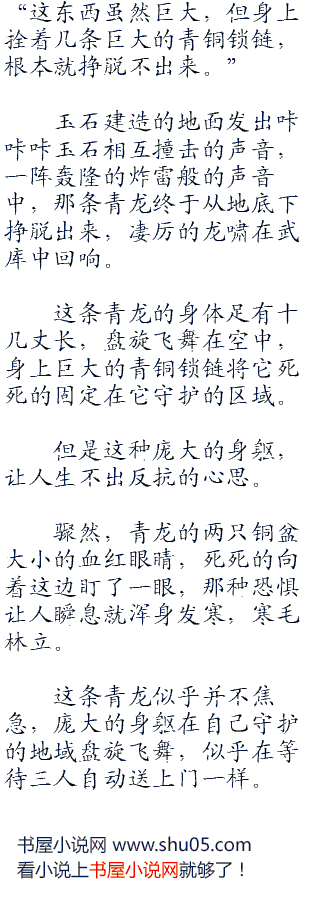 “这东西虽然巨大，但身上
拴着几条巨大的青铜锁链，
根本就挣脱不出来。”
玉石建造的地面发出咔
咔咔玉石相互撞击的声音，
一阵轰隆的炸雷般的声音
中，那条青龙终于从地底下
挣脱出来，凄厉的龙啸在武
库中回响。
这条青龙的身体足有十
几丈长，盘旋飞舞在空中，
身上巨大的青铜锁链将它死
死的固定在它守护的区域。
但是这种庞大的身躯，
让人生不出反抗的心思。
骤然，青龙的两只铜盆
大小的血红眼睛，死死的向
着这边盯了一眼，那种恐惧
让人瞬息就浑身发寒，寒毛
林立。
这条青龙似乎并不焦
急，庞大的身躯在自己守护
的地域盘旋飞舞，似乎在等
待三人自动送上门一样。
书屋小说网 www.shu05.com
看小说上书屋小说网就够了！